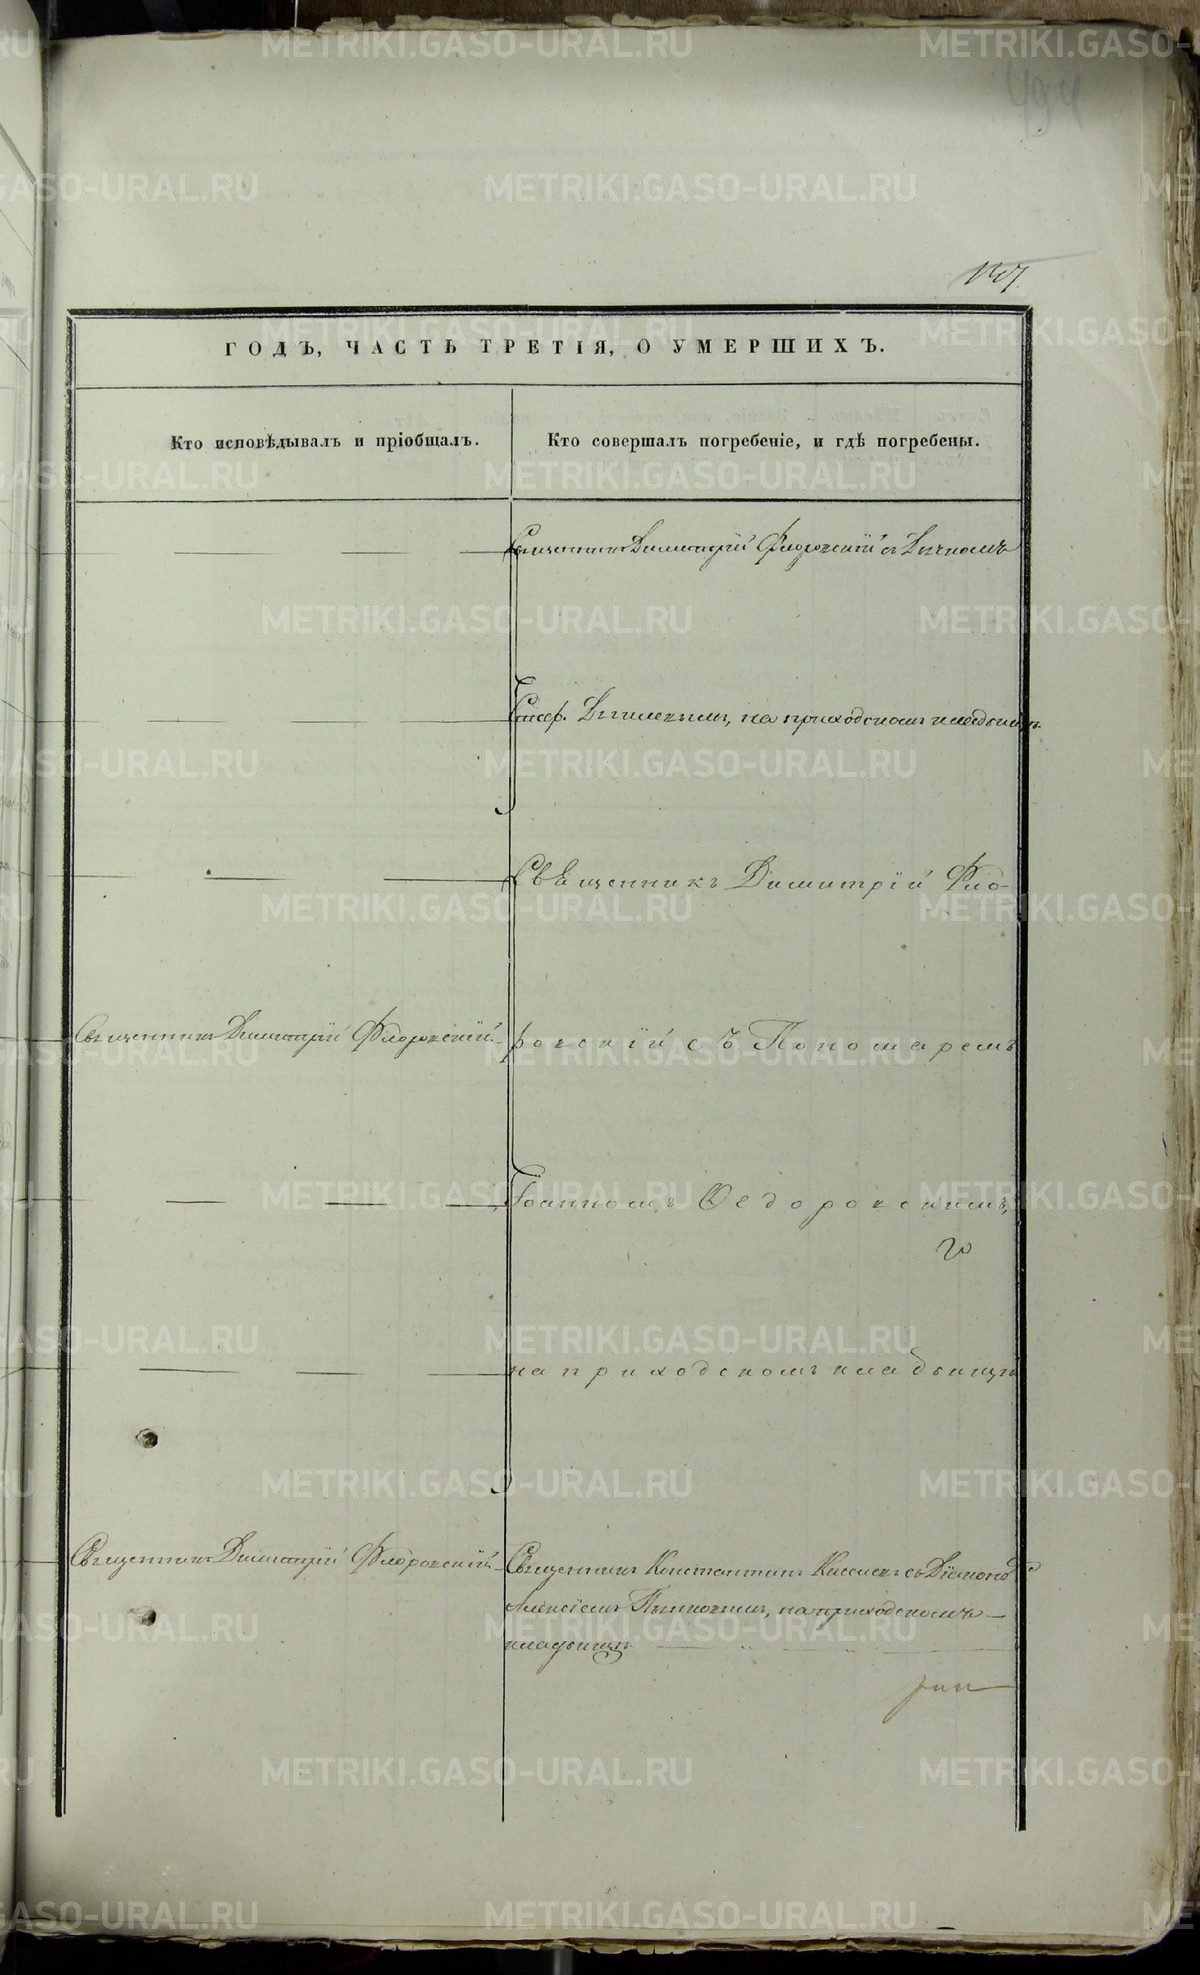 494
ГОДЪ, ЧАСТЬ ТРЕТІЯ, О УМЕРШИХЪ.
Кто исповѣдывалъ и пріобщалъ.
Кто совершалъ погребеніе, и гдѣ погребены.
Священникъ Димитрій Флоровскій съ Дьячкомъ
на приходскомъ кладбищѣ.
Священникъ Димитрій Фло-
Священникъ Димитрій Флоровскій.
ровскій съ Пономаремъ
Іоанномъ Федоровскимъ,
на приходскомъ кладбищѣ
Священникъ Димитрій Флоровскій.
Священникъ Константинъ съ Діакономъ
Алексіемъ на приходскомъ
кладбищѣ
METRIKI.GASO-URAL.RU